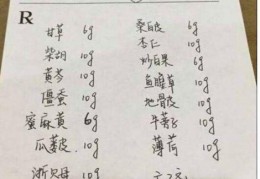 R
甘草 6g 桑白皮 6g
柴胡 10g 杏仁 10g
黄芩 10g 炒白果 6g
僵蚕 10g 鱼腥草 10g
蜜麻黄 6g 地骨皮 10g
瓜蒌皮 10g 牛蒡子 10g
浙贝母 10g 薄荷 10g